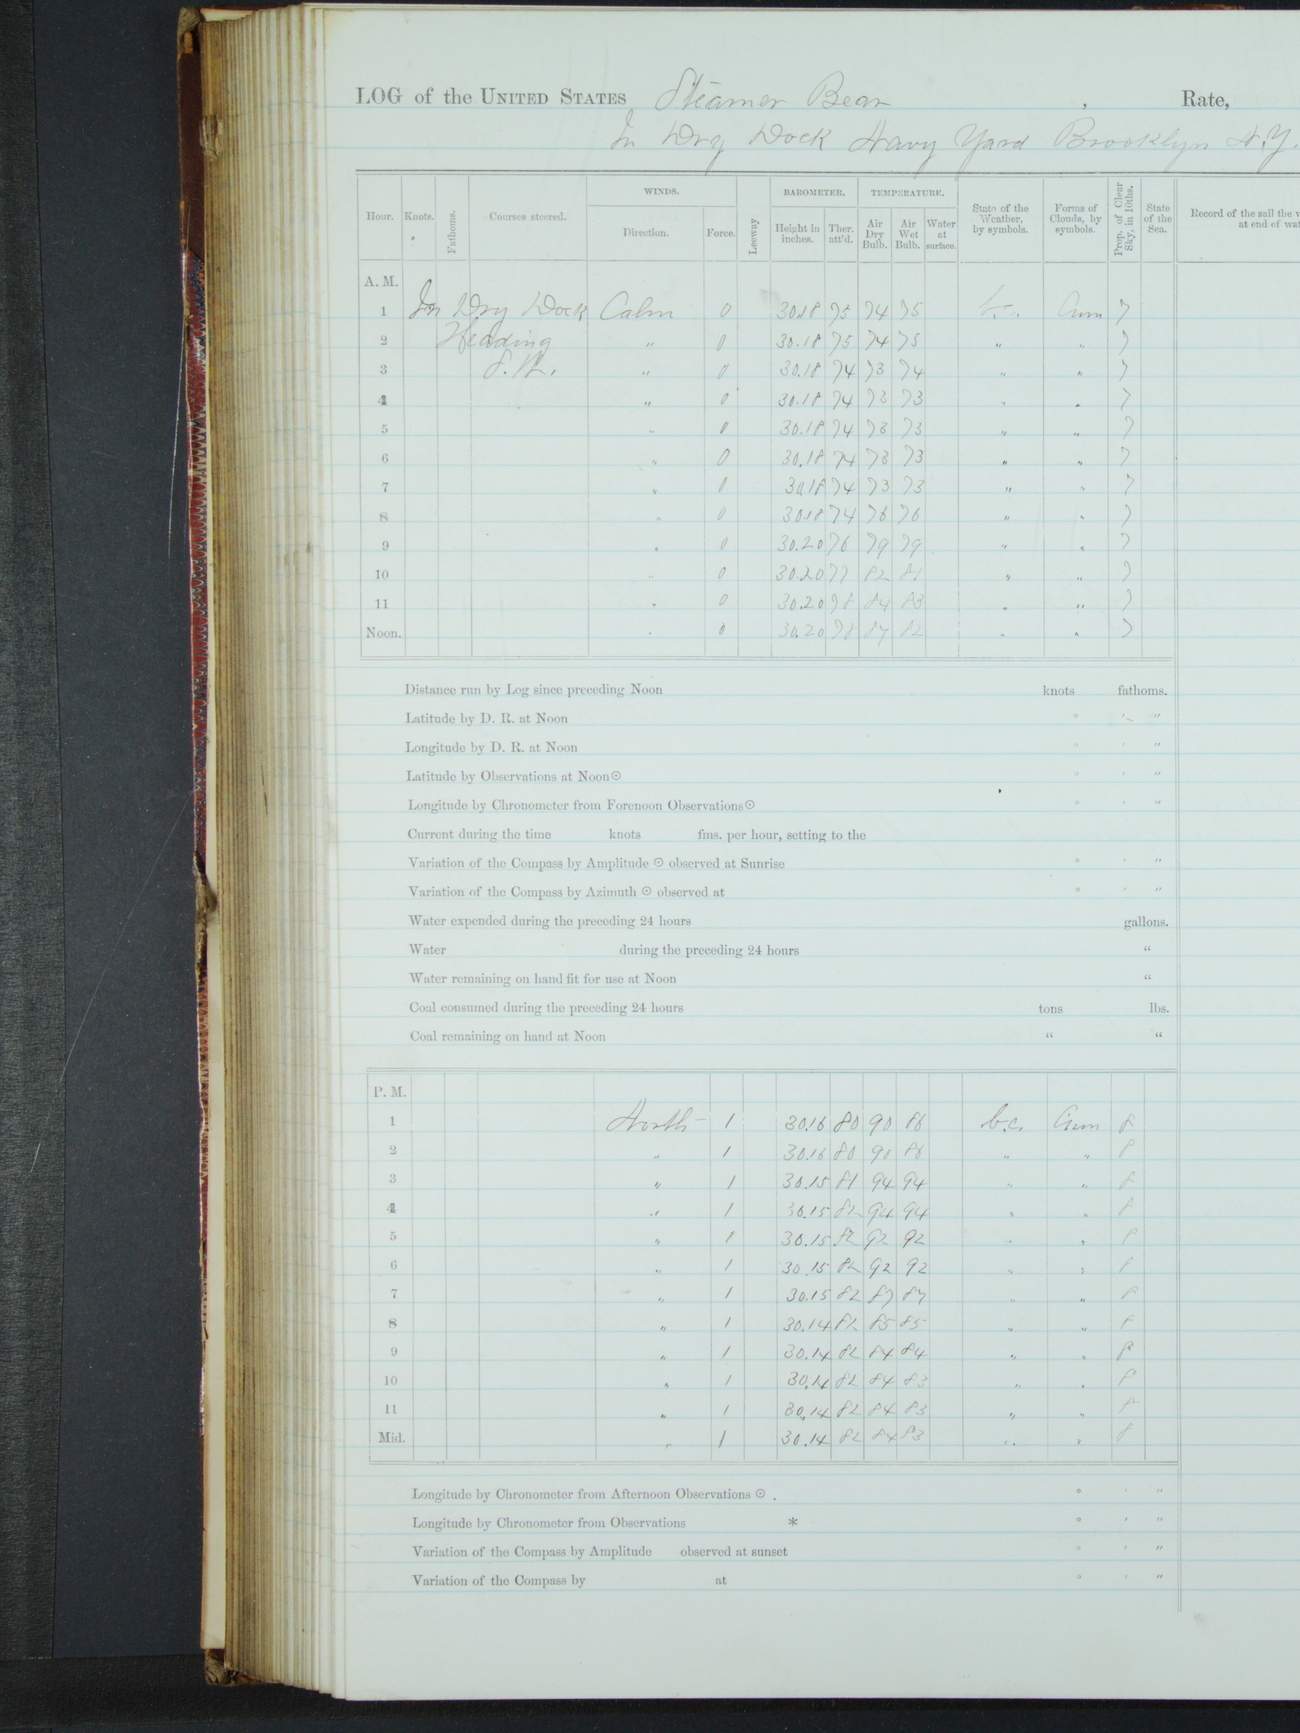 LOG of the UNITED STATES Steamer Bear , Rate,
In Dry Dock Navy Yard Brooklyn N.Y.
Hour. Knots. Fathoms. Courses steered. WINDS. Direction. Force. Leeway BAROMETER. Height in inches. Ther. att'd. TEMPERATURE. Air Dry Bulb. Air Wet Bulb. Water at surface. State of the Weather, by symbols. Forms of Clouds, by symbols. Prop. of Clear Sky, in 10ths. State of the Sea. Record of the sail the v
at end of wat
A. M.
1 In Dry Dock Calm 0 30.18 75 74 75 Cum 7
2 Heading " 0 30.18 75 74 75 " " 7
3 " 0 30.18 74 73 74 " " 7
4 " 0 30.18 74 73 73 " " 7
5 " 0 30.18 74 73 73 " " 7
6 " 0 30.18 74 73 73 " " 7
7 " 0 30.18 74 73 73 " " 7
8 " 0 30.18 74 76 76 " " 7
9 " 0 30.20 76 79 79 " " 7
10 " 0 30.20 77 82 81 " " 7
11 " 0 30.20 78 84 83 " " 7
Noon. " 0 30.20 78 87 82 " " 7
Distance run by Log since preceding Noon knots fathoms.
Latitude by D. R. at Noon ° ' "
Longitude by D. R. at Noon ° ' "
Latitude by Observations at Noon ☉ ° ' "
Longitude by Chronometer from Forenoon Observations ☉ ° ' "
Current during the time knots fms. per hour, setting to the
Variation of the Compass by Amplitude ☉ observed at Sunrise ° ' "
Variation of the Compass by Azimuth ☉ observed at ° ' "
Water expended during the preceding 24 hours gallons.
Water during the preceding 24 hours "
Water remaining on hand fit for use at Noon "
Coal consumed during the preceding 24 hours tons lbs.
Coal remaining on hand at Noon " "
P. M.
1 North 1 30.16 80 90 86 b.c. Cum 8
2 " 1 30.16 80 90 86 " " 8
3 " 1 30.15 81 94 94 " " 8
4 " 1 30.15 82 94 94 " " 8
5 " 1 30.15 82 92 92 " " 8
6 " 1 30.15 82 92 92 " " 8
7 " 1 30.15 82 87 87 " " 8
8 " 1 30.14 82 85 85 " " 8
9 " 1 30.14 82 84 84 " " 8
10 " 1 30.14 82 84 83 " " 8
11 " 1 30.14 82 84 83 " " 8
Mid. " 1 30.14 82 84 83 " " 8
Longitude by Chronometer from Afternoon Observations ☉ . ° ' "
Longitude by Chronometer from Observations * ° ' "
Variation of the Compass by Amplitude observed at sunset ° ' "
Variation of the Compass by at ° ' "